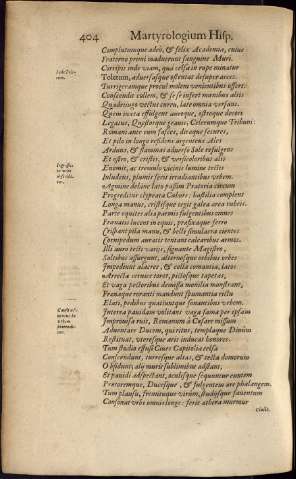 404 Martyrologium Hisp.
Complutumque adeò, & felix Academia, cuius
Fraterno primi maduerunt sanguine Muri.
Corripit inde viam, quà celsa in rupe minatur
Toletum, aduersasque ostentat desuper arces.
Turrigerumque procul molem venientibus effert:
Conscendit collem, & se se infert mœnibus altis
Quadriiugo vectus curru, late omnia versans.
Quem iuxta effulgent aureque, ostroque decori
Legatus, Quæstorque grauis, Celerumque Tribuni
Romano ante eum fasces, diraque secures,
Et pilo in longo residens argenteus Ales
Ardens, & flammas aduerso Sole refulgens
Et ostro, & cristis, & versicoloribus alis
Euomit, ac tremulo vicinis lumine tectis
Inludens, plumis ferit irradiantibus vrbem.
Agmine dehinc lato passim Prætoria circum
Progreditur clypeata Cohors; hastilia complent
Longa manus, cristisque tegit galea ærea rubris.
Parte equites alia parmis fulgentibus omnes
Frænatis lucent in equis, præfixaque ferro
Crispant pila manu, & belli simulacra cientes
Cornipedum auratis tentant calcaribus armos.
Illi auro tecti varijs, signante Magistro,
Saltibus assurgunt, alternosque orbibus orbes
Impediunt alacres, & colla comantia, latos
Arrecta ceruice toros, pictosque tapetas,
Et vaga pectoribus demissa monilia monstrant,
Frænaque roranti mandunt spumantia rictu
Elati, pedibus quatiuntque sonantibus vrbem.
Interea pauidam volitans vaga fama per vrbem
Improuisa ruit, Romanum à Cæsare missum
Aduentare Ducem, qui ritus, templaque Diuûm
Restituat, veteresque aris inducat honores.
Tum studio effusi Ciues Capitolia celsa
Conscendunt, turresque altas, & tecta domorum
Obsident, alij muris sublimibus adstant,
Et pauidi adspectant, oculisque sequuntur euntem
Prætoremque, Ducesque, & fulgentem ære phalangem.
Tum plausu, fremituque virûm, studijsque fauentum
Consonat vrbs omnis longe: ferit æthera murmur